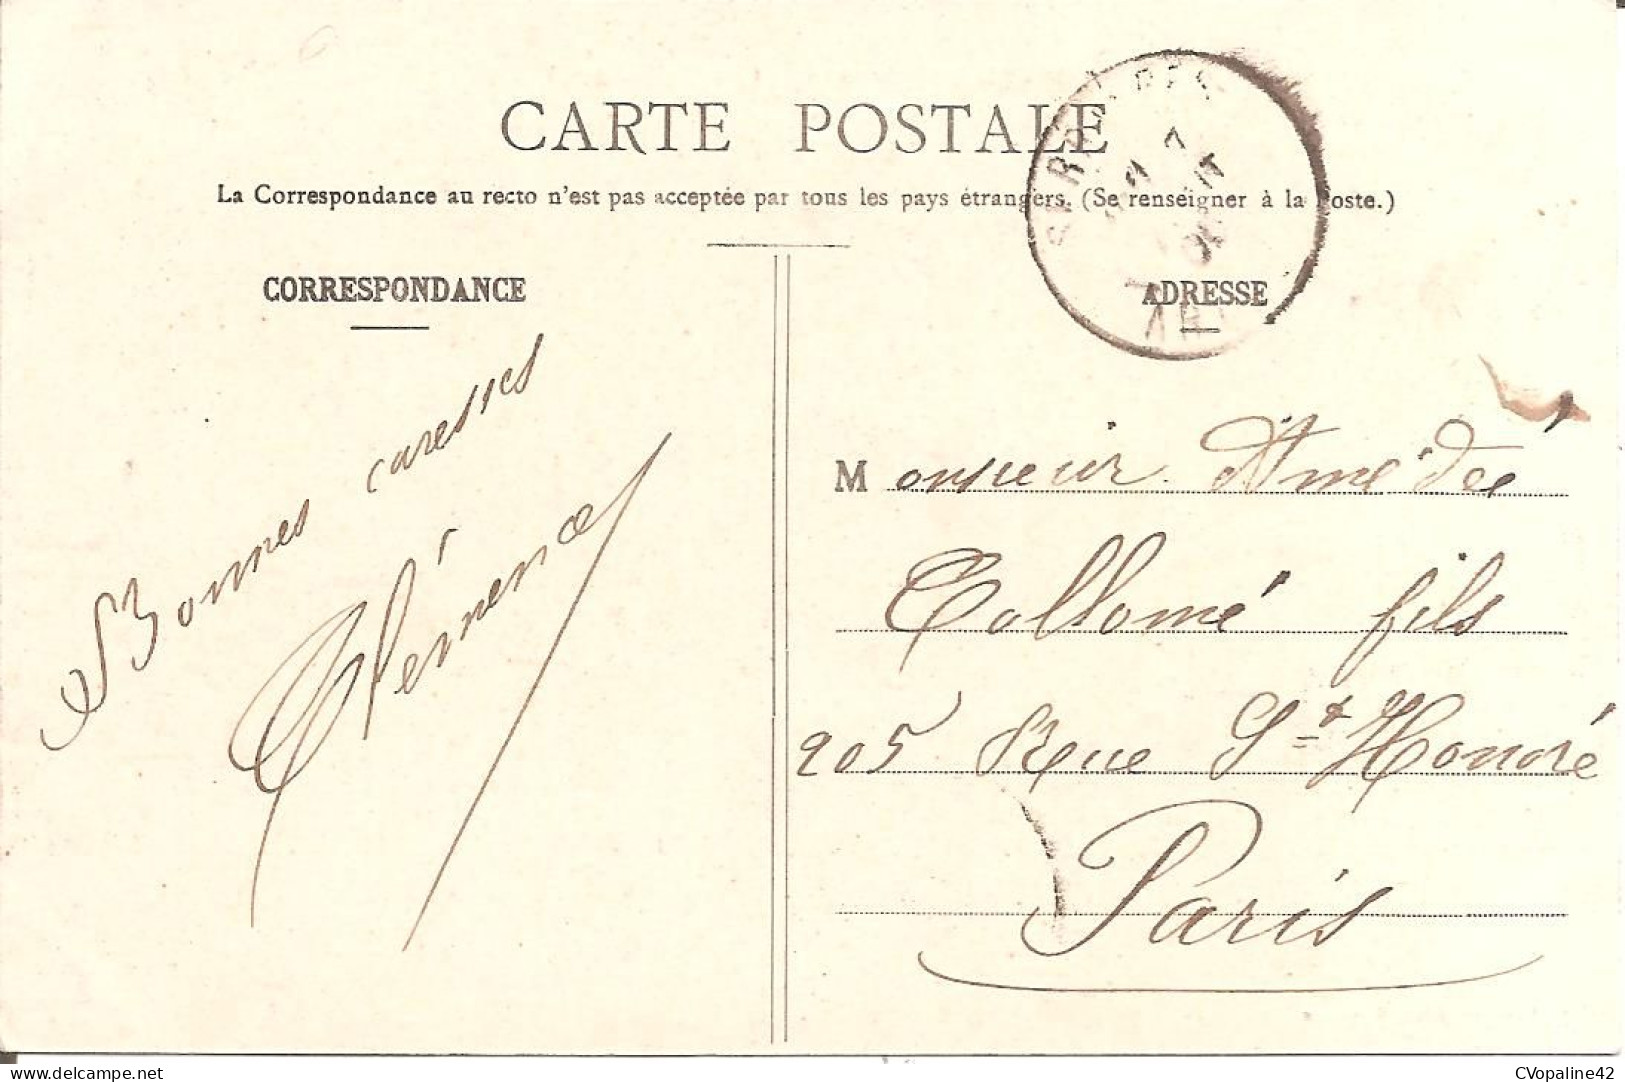 CARTE POSTALE
La Correspondance au recto n'est pas acceptée par tous les pays étrangers. (Se renseigner à la Poste.)
CORRESPONDANCE
Bonnes caresses
Clémence
ADRESSE
Monsieur Amédée
Collomé fils
205 Rue St Honoré
Paris
CVopaline42